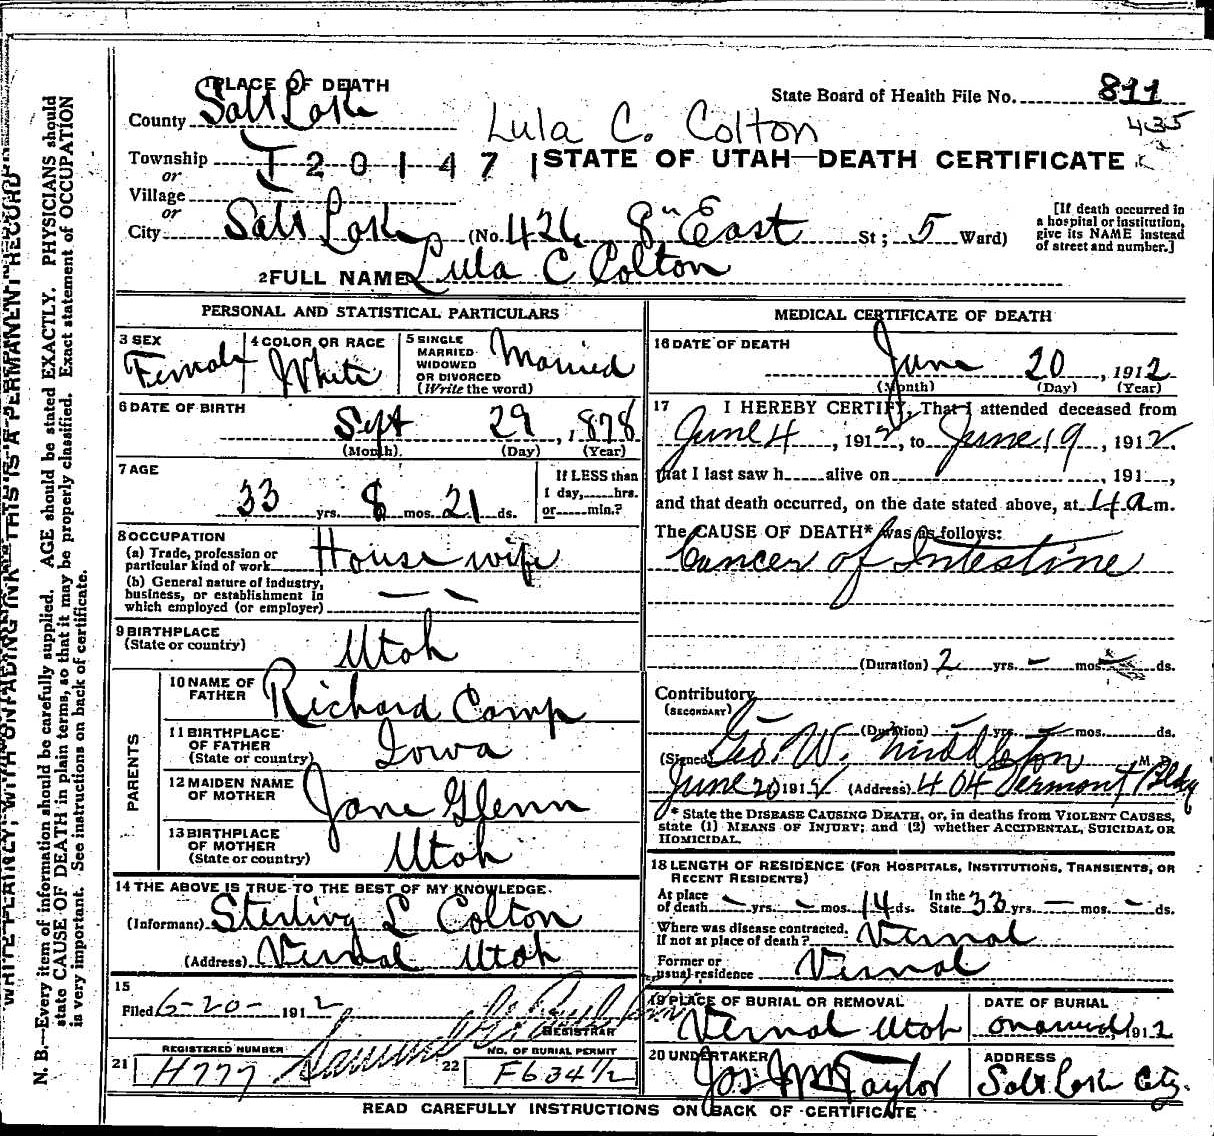 1 PLACE OF DEATH
State Board of Health File No. 811
435
County Salt Lake
Lula C. Colton
Township
or
I 20147
STATE OF UTAH—DEATH CERTIFICATE
Village
or
City Salt Lake (No. 426 8th East St; 5 Ward)
[If death occurred in a hospital or institution, give its NAME instead of street and number.]
2 FULL NAME Lula C Colton
PERSONAL AND STATISTICAL PARTICULARS
3 SEX Female
4 COLOR OR RACE White
5 SINGLE MARRIED WIDOWED OR DIVORCED (Write the word) Married
6 DATE OF BIRTH Sept 29, 1878
(Month) (Day) (Year)
7 AGE 33 yrs. 8 mos. 21 ds.
If LESS than 1 day, hrs. or min.?
8 OCCUPATION
(a) Trade, profession or particular kind of work House wife
(b) General nature of industry, business, or establishment in which employed (or employer) — —
9 BIRTHPLACE (State or country) Utah
PARENTS
10 NAME OF FATHER Richard Camp
11 BIRTHPLACE OF FATHER (State or country) Iowa
12 MAIDEN NAME OF MOTHER Jane Glenn
13 BIRTHPLACE OF MOTHER (State or country) Utah
14 THE ABOVE IS TRUE TO THE BEST OF MY KNOWLEDGE
(Informant) Sterling L Colton
(Address) Vernal Utah
15
Filed 6-20- 1912
REGISTRAR
21 REGISTERED NUMBER H777
22 NO. OF BURIAL PERMIT F634 1/2
MEDICAL CERTIFICATE OF DEATH
16 DATE OF DEATH June 20, 1912
(Month) (Day) (Year)
17 I HEREBY CERTIFY, That I attended deceased from
June 4, 1912, to June 19, 1912.
that I last saw h alive on , 191 ,
and that death occurred, on the date stated above, at 4 a m.
The CAUSE OF DEATH* was as follows:
Cancer of Intestine
(Duration) 2 yrs. — mos. ds.
Contributory
(SECONDARY)
(Duration) yrs. mos. ds.
(Signed) Geo. W. Middleton M. D.
June 20 1912 (Address) 404 Vermont Bldg
* State the DISEASE CAUSING DEATH, or, in deaths from VIOLENT CAUSES, state (1) MEANS OF INJURY; and (2) whether ACCIDENTAL, SUICIDAL OR HOMICIDAL.
18 LENGTH OF RESIDENCE (FOR HOSPITALS, INSTITUTIONS, TRANSIENTS, OR RECENT RESIDENTS)
At place of death — yrs. — mos. 14 ds. In the State 33 yrs. — mos. — ds.
Where was disease contracted, if not at place of death? Vernal
Former or usual residence Vernal
19 PLACE OF BURIAL OR REMOVAL Vernal Utah
DATE OF BURIAL 1912
20 UNDERTAKER Jos Wm Taylor
ADDRESS Salt Lake Cty.
READ CAREFULLY INSTRUCTIONS ON BACK OF CERTIFICATE
WRITE PLAINLY, WITH UNFADING INK—THIS IS A PERMANENT RECORD
N. B.—Every item of information should be carefully supplied. AGE should be stated EXACTLY. PHYSICIANS should
state CAUSE OF DEATH in plain terms, so that it may be properly classified. Exact statement of OCCUPATION
is very important. See instructions on back of certificate.